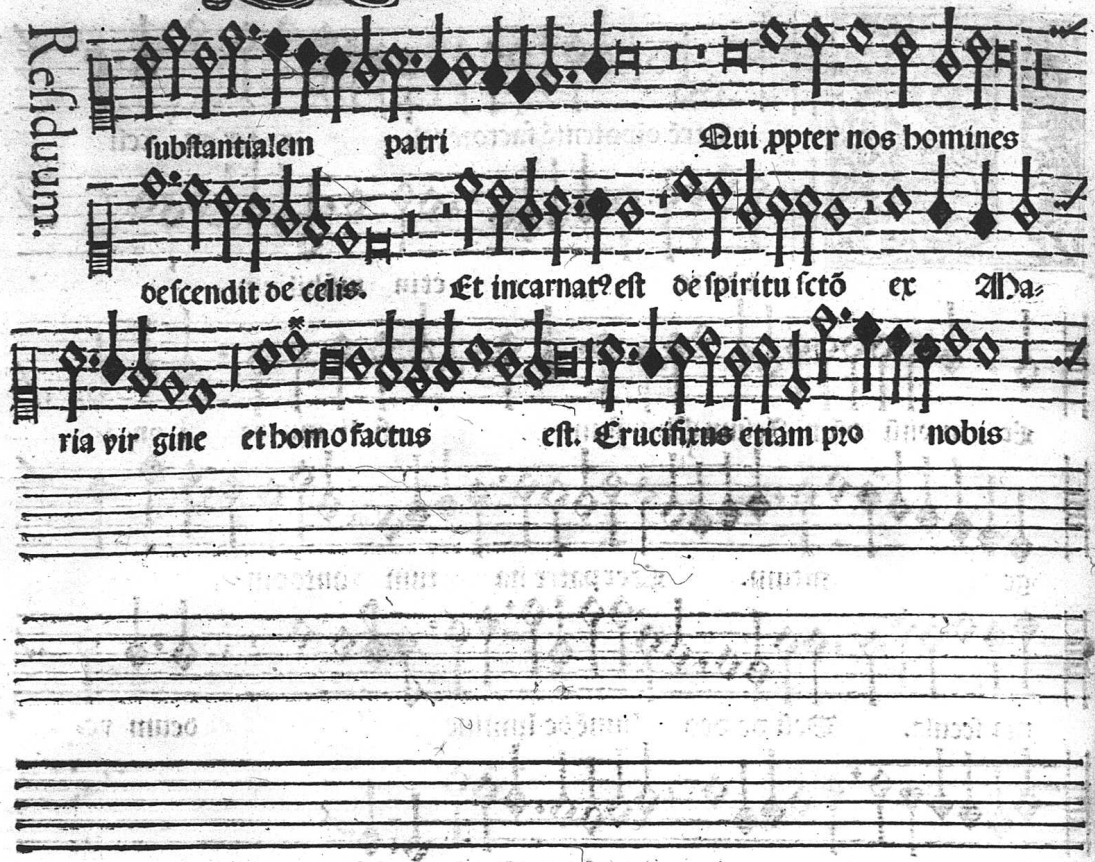 Residuum.
substantialem patri Qui ppter nos homines
descendit de celis. Et incarnat? est de spiritu sctō ex Ma-
ria vir gine et homo factus est. Crucifixus etiam pro nobis